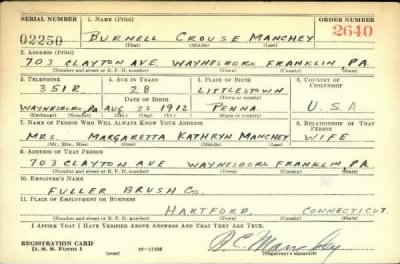 SERIAL NUMBER 1. NAME (Print) ORDER NUMBER
02250 BURNELL CROUSE MANCHEY 2640
(First) (Middle) (Last)
2. ADDRESS (Print)
703 CLAYTON AVE. WAYNESBORO FRANKLIN PA.
(Number and street or R. F. D. number) (Town) (County) (State)
3. TELEPHONE 4. AGE IN YEARS 5. PLACE OF BIRTH 6. COUNTRY OF CITIZENSHIP
351R 28 LITTLESTOWN
DATE OF BIRTH (Town or county)
WAYNESBORO PA. AUG 23 1912 PENNA U.S.A
(Exchange) (Number) (Mo.) (Day) (Yr.) (State or country)
7. NAME OF PERSON WHO WILL ALWAYS KNOW YOUR ADDRESS 8. RELATIONSHIP OF THAT PERSON
MRS. MARGARETTA KATHRYN MANCHEY WIFE
(Mr., Mrs., Miss) (First) (Middle) (Last)
9. ADDRESS OF THAT PERSON
703 CLAYTON AVE WAYNESBORO FRANKLIN PA.
(Number and street or R. F. D. number) (Town) (County) (State)
10. EMPLOYER'S NAME
FULLER BRUSH CO.
11. PLACE OF EMPLOYMENT OR BUSINESS
HARTFORD. CONNECTICUT.
(Number and street or R. F. D. number) (Town) (County) (State)
I AFFIRM THAT I HAVE VERIFIED ABOVE ANSWERS AND THAT THEY ARE TRUE.
REGISTRATION CARD
D. S. S. Form 1 B.C. Manchey
(Registrant's signature)